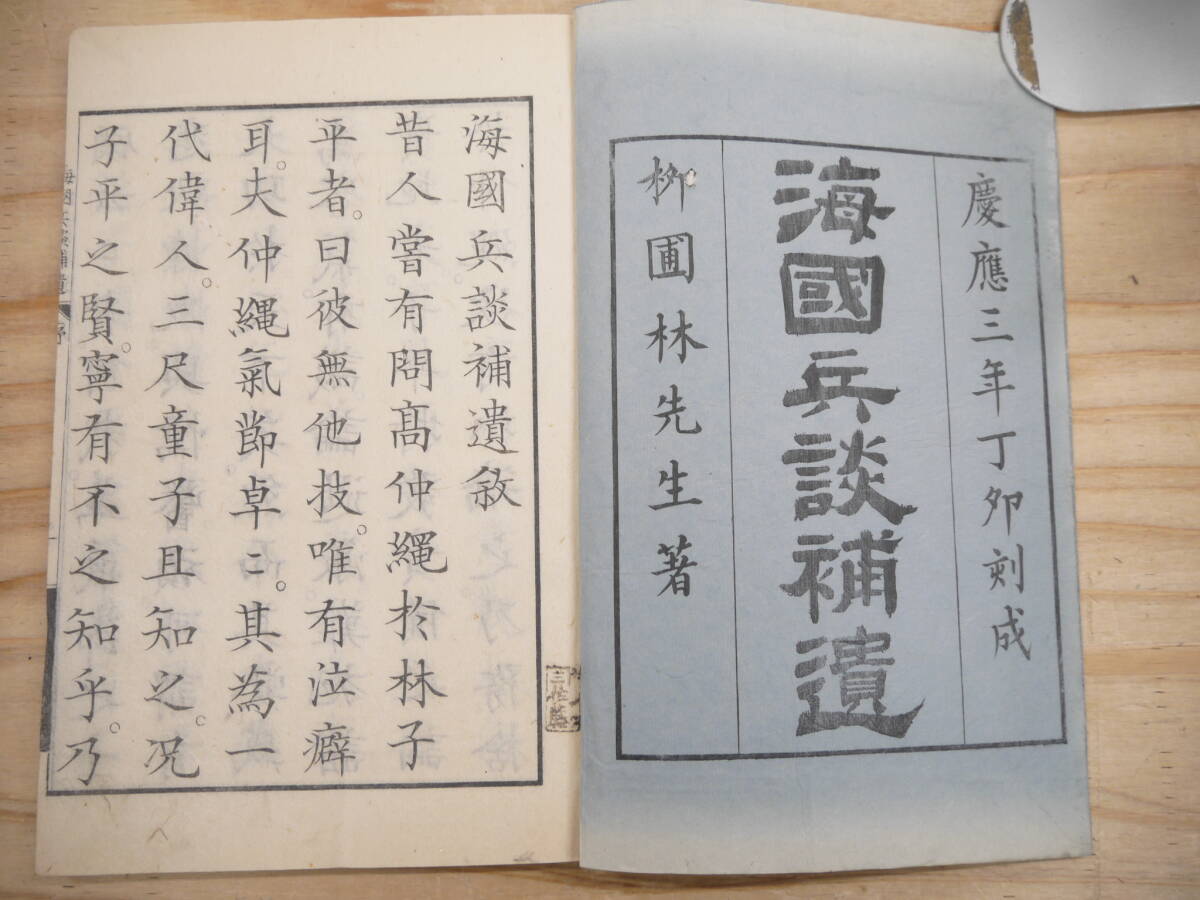 慶應三年丁卯刻成
海國兵談補遺
柳圃林先生著
海國兵談補遺敘
昔人嘗有問髙仲縄於林子
平者。曰彼無他技。唯有泣癖
耳。夫仲縄氣節卓〻。其為一
代偉人。三尺童子且知之。况
子平之賢。寧有不之知乎。乃
海國兵談補遺 序